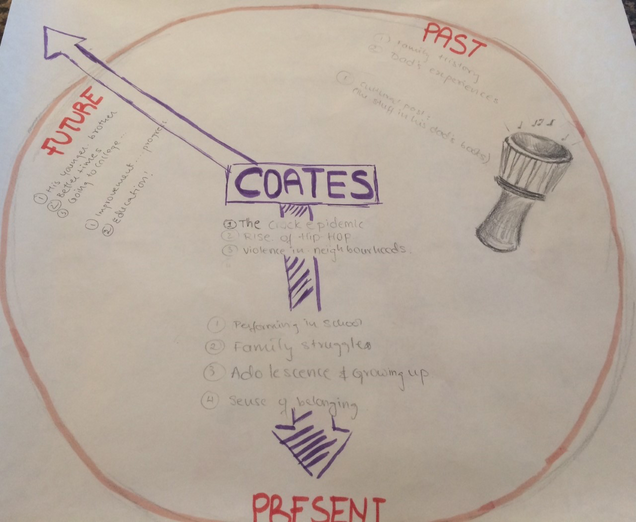 PAST
① Family history
② Dad's experiences
① Cultural past:
(his dad's books)
FUTURE
① His younger brother
② Better times
③ Going to college
① improvement... progress
② Education!
COATES
① The Crack epidemic
② Rise of Hip Hop
③ violence in neighbourhoods
① Performing in school
② Family struggles
③ Adolescence & growing up
④ Sense of belonging
PRESENT